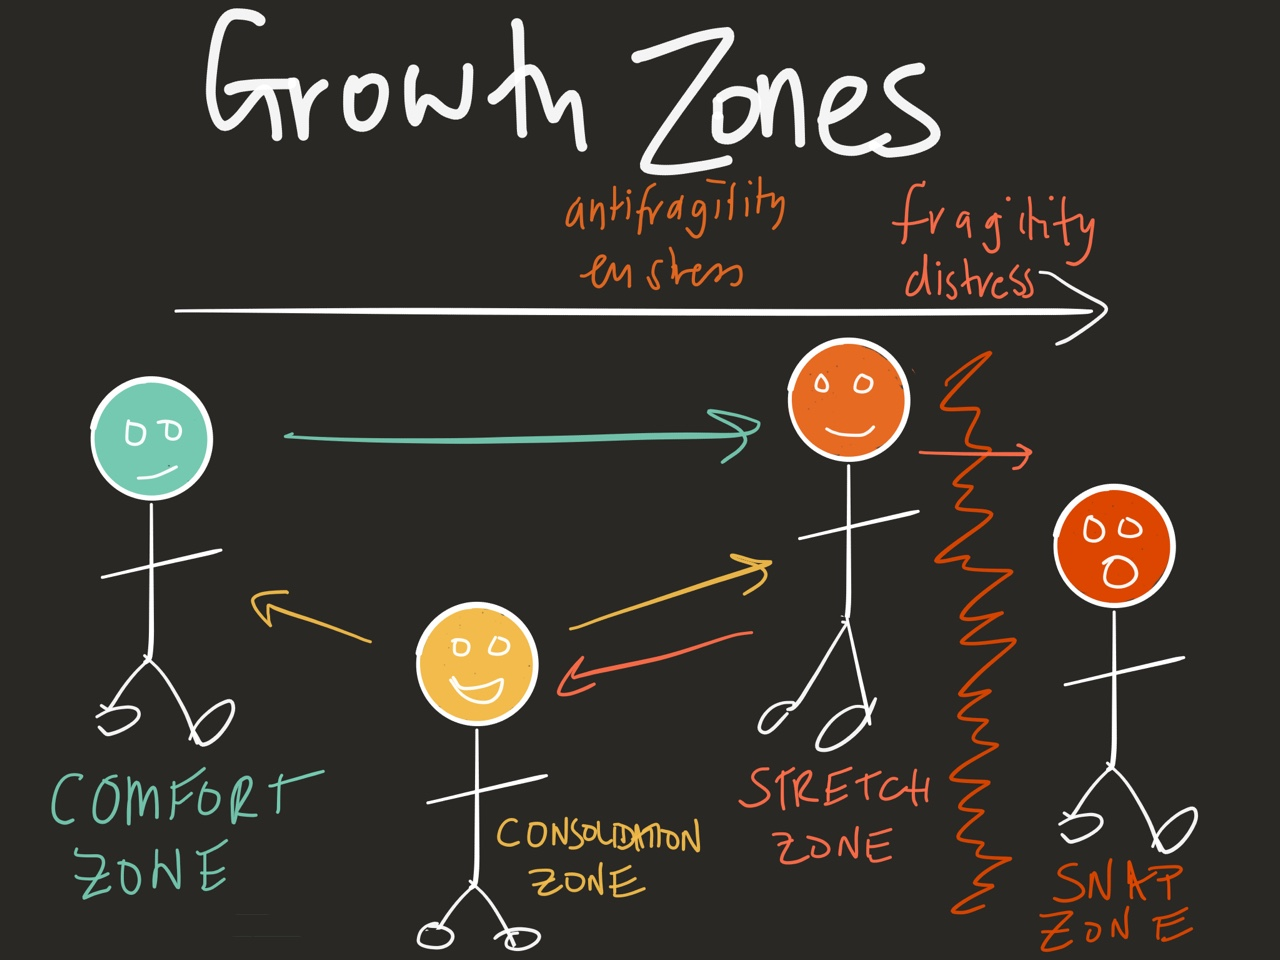 Growth Zones
antifragility
eustress
fragility
distress
COMFORT
ZONE
CONSOLIDATION
ZONE
STRETCH
ZONE
SNAP
ZONE